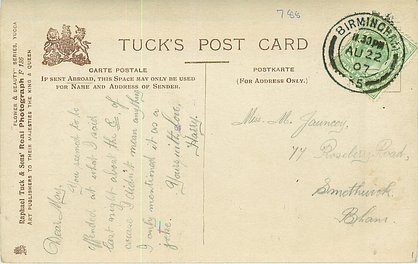 786
TUCK'S POST CARD
CARTE POSTALE
IF SENT ABROAD, THIS SPACE MAY ONLY BE USED
FOR NAME AND ADDRESS OF SENDER.
POSTKARTE
(FOR ADDRESS ONLY.)
BIRMINGHAM
11.30PM
AU 22
07
Raphael Tuck & Sons' Real Photograph
ART PUBLISHERS TO THEIR MAJESTIES THE KING & QUEEN
Dear May,
You seemed to be
offended at what I said
last night about the of
course I didn't mean anything
I only mentioned it as a
joke.
Yours with love,
Harry.
Mrs. M. Jauncey.
77 Rosebery Road,
Smethwick
Bham